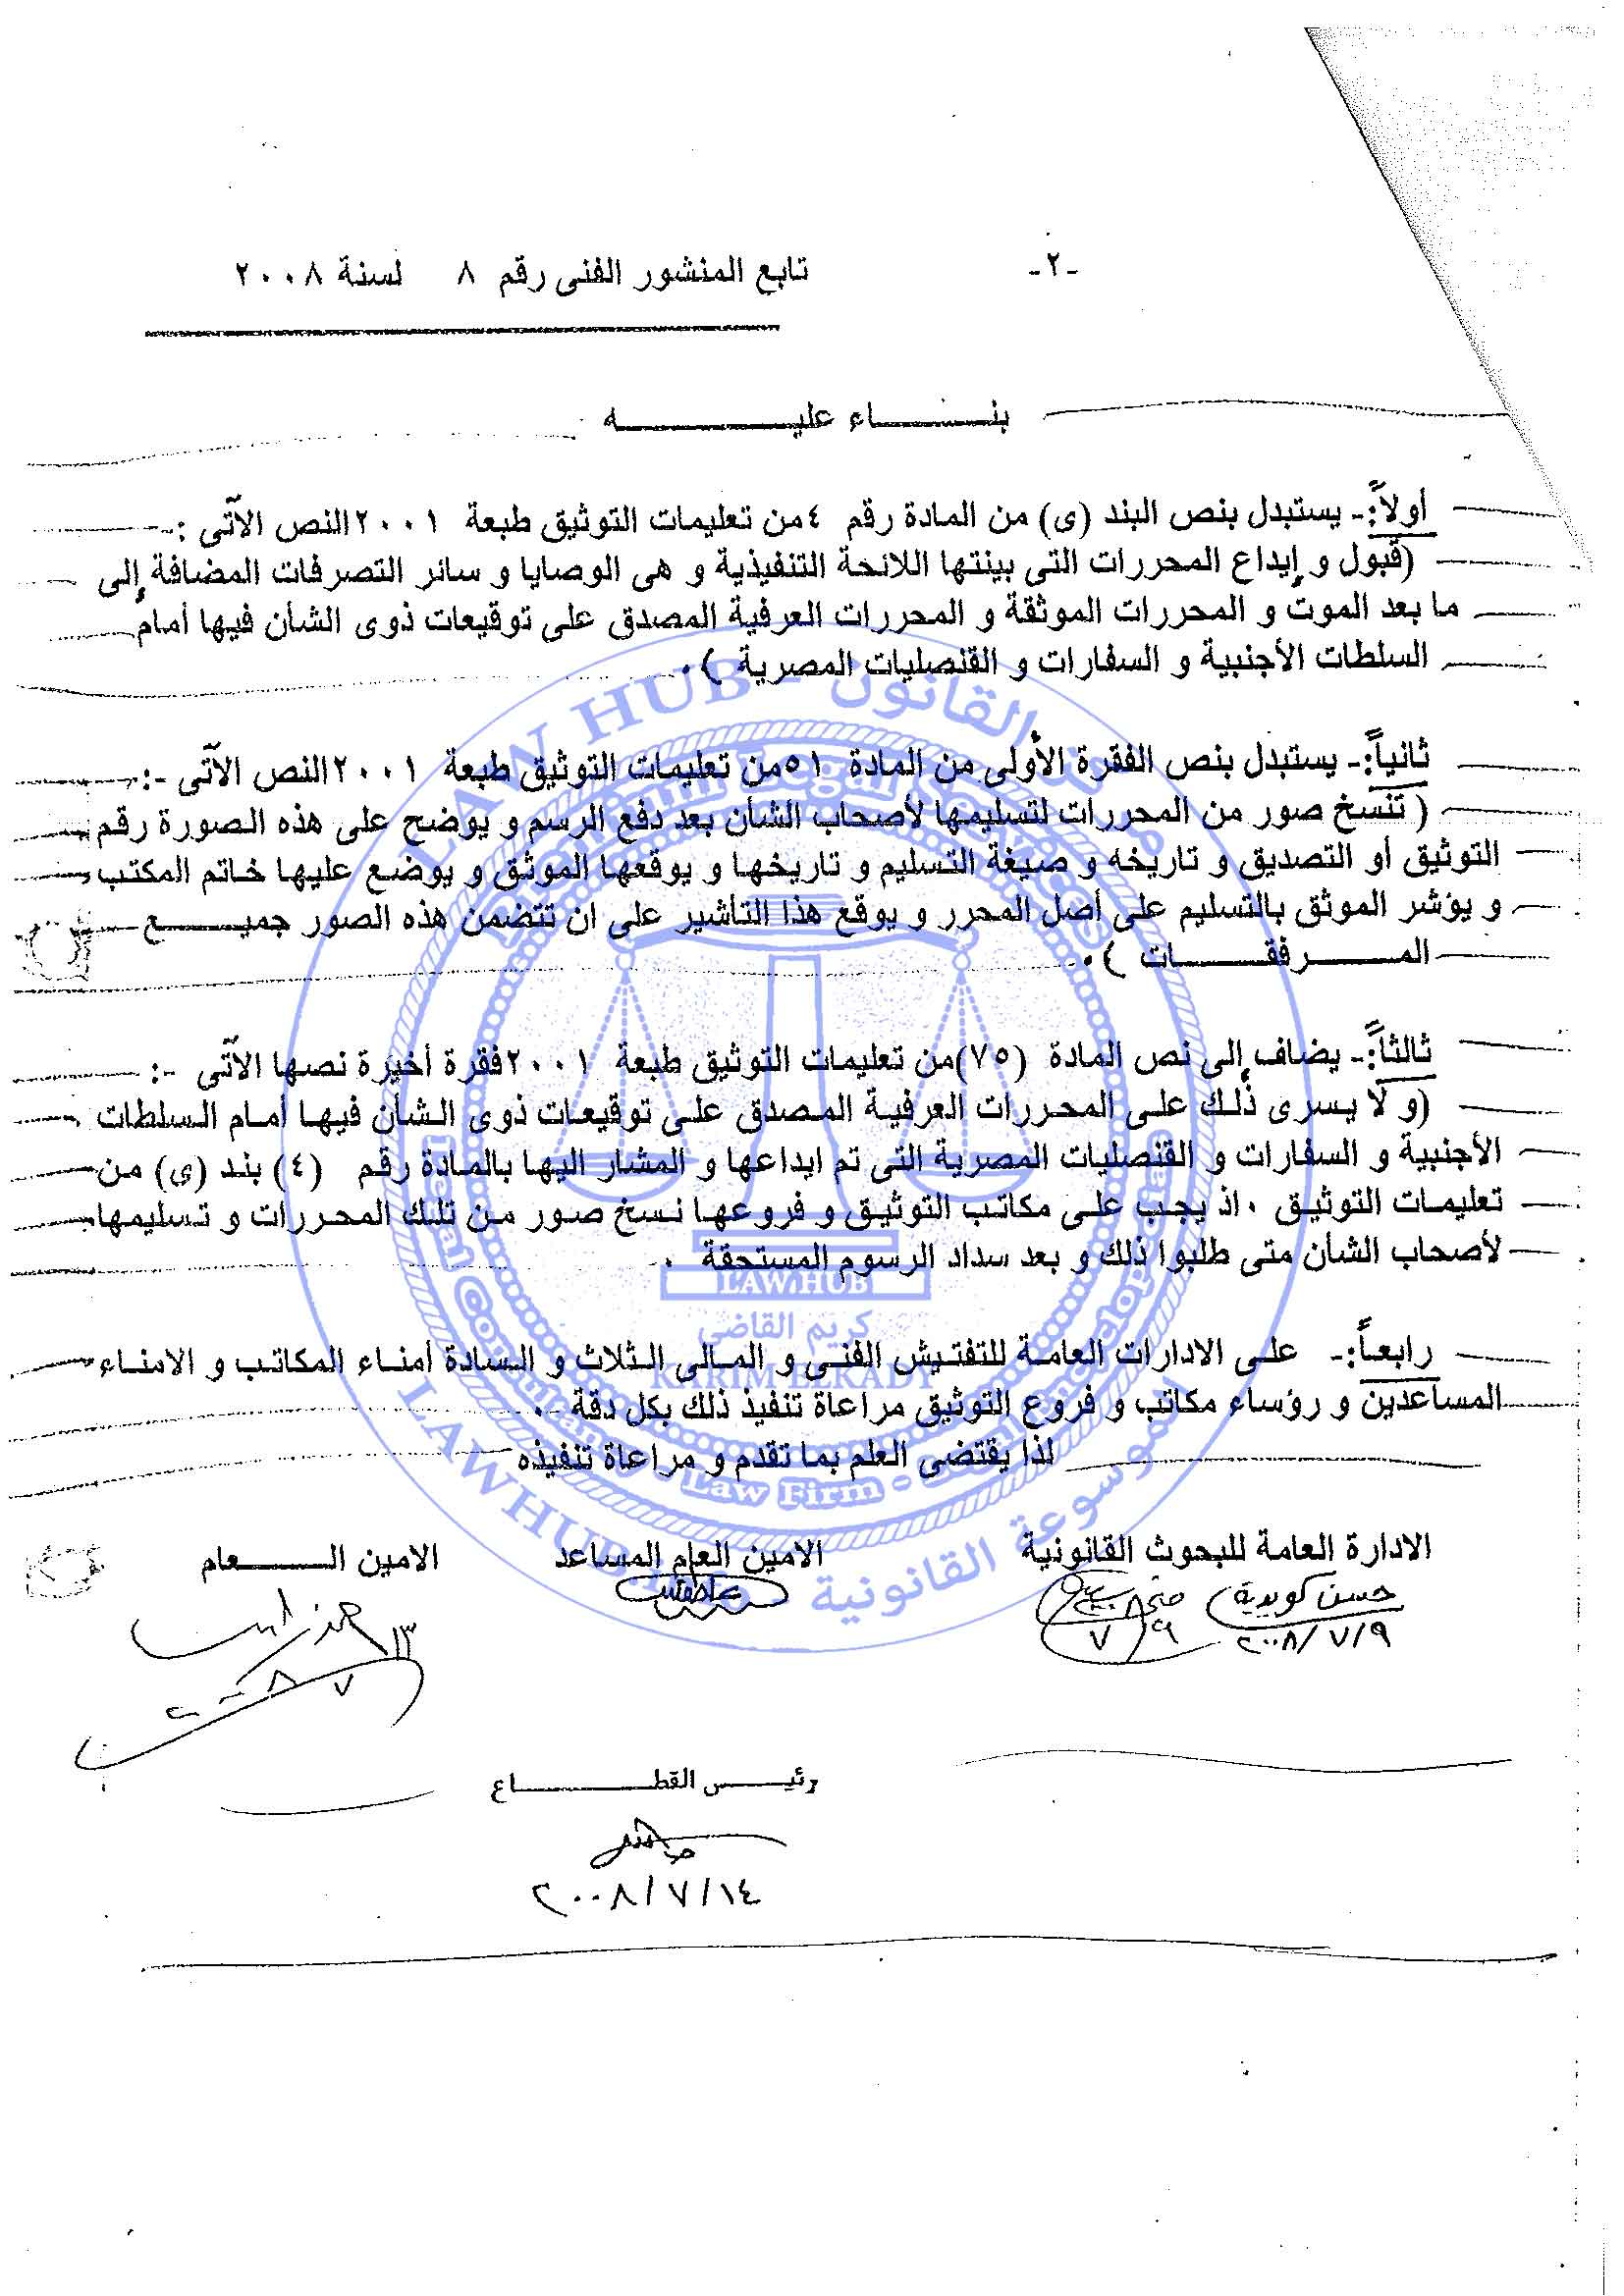 -٢-
تابع المنشور الفنى رقم ٨ لسنة ٢٠٠٨
بنـــــاء عليـــــــــه
أولاً:- يستبدل بنص البند (ى) من المادة رقم ٤ من تعليمات التوثيق طبعة ٢٠٠١ النص الآتى :-
(قبول و إيداع المحررات التى بينتها اللائحة التنفيذية و هى الوصايا و سائر التصرفات المضافة إلى
ما بعد الموت و المحررات الموثقة و المحررات العرفية المصدق على توقيعات ذوى الشأن فيها أمام
السلطات الأجنبية و السفارات و القنصليات المصرية ).
ثانياً:- يستبدل بنص الفقرة الأولى من المادة ٥١ من تعليمات التوثيق طبعة ٢٠٠١ النص الآتى :-
( تنسخ صور من المحررات لتسليمها لأصحاب الشأن بعد دفع الرسم و يوضح على هذه الصورة رقم
التوثيق أو التصديق و تاريخه و صيغة التسليم و تاريخها و يوقعها الموثق و يوضع عليها خاتم المكتب
و يؤشر الموثق بالتسليم على أصل المحرر و يوقع هذا التأشير على ان تتضمن هذه الصور جميـــــع
المـــــــرفقـــــــات ).
ثالثاً:- يضاف إلى نص المادة (٧٥) من تعليمات التوثيق طبعة ٢٠٠١ فقرة أخيرة نصها الآتى :-
(و لا يسرى ذلك على المحررات العرفية المصدق على توقيعات ذوى الشأن فيها أمام السلطات
الأجنبية و السفارات و القنصليات المصرية التى تم ايداعها و المشار اليها بالمادة رقم (٤) بند (ى) من
تعليمات التوثيق . اذ يجب على مكاتب التوثيق و فروعها نسخ صور من تلك المحررات و تسليمها
لأصحاب الشأن متى طلبوا ذلك و بعد سداد الرسوم المستحقة .
رابعاً:- على الادارات العامة للتفتيش الفنى و المالى الثلاث و السادة أمناء المكاتب و الامناء
المساعدين و رؤساء مكاتب و فروع التوثيق مراعاة تنفيذ ذلك بكل دقة .
لذا يقتضى العلم بما تقدم و مراعاة تنفيذه
الادارة العامة للبحوث القانونية
حسن كويدية
٢٠٠٨/٧/٩
الامين العام المساعد
الامين الـــــــعام
رئيـــــس القطـــــــــاع
٢٠٠٨/٧/١٤
LAW HUB
كريم القاضى
KARIM ELKADY